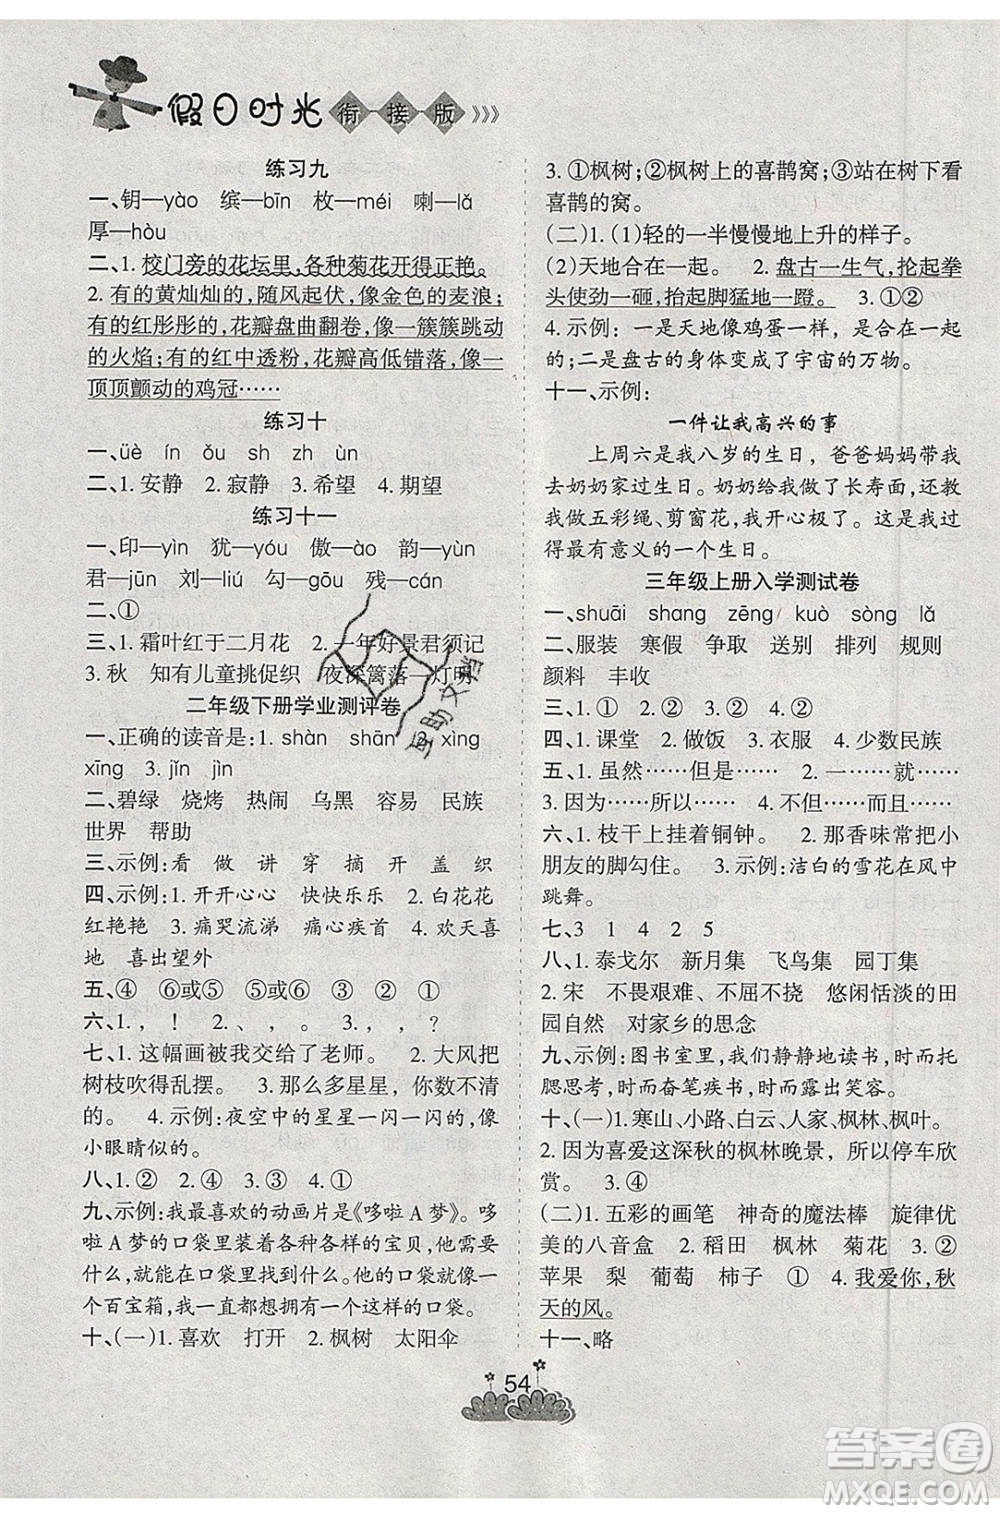 假日时光 衔接版
练习九
一、钥—yào 缤—bīn 枚—méi 喇—lǎ
厚—hòu
二、1. 校门旁的花坛里,各种菊花开得正艳。
2. 有的黄灿灿的,随风起伏,像金色的麦浪;
有的红彤彤的,花瓣盘曲翻卷,像一簇簇跳动
的火焰;有的红中透粉,花瓣高低错落,像一
顶顶颤动的鸡冠……
练习十
一、üè ín ǒu sh zh ùn
二、1. 安静 2. 寂静 3. 希望 4. 期望
练习十一
一、印—yìn 犹—yóu 傲—ào 韵—yùn
君—jūn 刘—liú 勾—gōu 残—cán
二、①
三、1. 霜叶红于二月花 2. 一年好景君须记
3. 秋 知有儿童挑促织 夜深篱落一灯明
二年级下册学业测评卷
一、正确的读音是:1. shàn shān 2. xìng
xīng 3. jǐn jìn
二、碧绿 烧烤 热闹 乌黑 容易 民族
世界 帮助
三、示例:看 做 讲 穿 摘 开 盖 织
四、示例:1. 开开心心 快快乐乐 2. 白花花
红艳艳 3. 痛哭流涕 痛心疾首 4. 欢天喜
地 喜出望外
五、④ ⑥或⑤ ⑤或⑥ ③ ② ①
六、1. , ! 2. 、 , 。 3. , , ?
七、1. 这幅画被我交给了老师。 2. 大风把
树枝吹得乱摆。 3. 那么多星星,你数不清
的。 4. 示例:夜空中的星星一闪一闪的,像
小眼睛似的。
八、1. ② 2. ③ 3. ①
九、示例:我最喜欢的动画片是《哆啦A梦》。哆
啦A梦的口袋里装着各种各样的宝贝,他需要
什么,就能在口袋里找到什么,他的口袋就像一
个百宝箱,我一直都想拥有一个这样的口袋。
十、(一)1. 喜欢 打开 2. 枫树 太阳伞
3. ①枫树;②枫树上的喜鹊窝;③站在树下看
喜鹊的窝。
(二)1. (1)轻的一半慢慢地上升的样子。
(2)天地合在一起。 2. 盘古一生气,抡起拳
头使劲一砸,抬起脚猛地一蹬。 3. ①②
4. 示例:一是天地像鸡蛋一样,是合在一起
的;二是盘古的身体变成了宇宙的万物。
十一、示例:
一件让我高兴的事
上周六是我八岁的生日,爸爸妈妈带我
去奶奶家过生日。奶奶给我做了长寿面,还教
我做五彩绳、剪窗花,我开心极了。这是我过
得最有意义的一个生日。
三年级上册入学测试卷
一、shuāi shang zēng kuò sòng lǎ
二、服装 寒假 争取 送别 排列 规则
颜料 丰收
三、1. ② 2. ① 3. ② 4. ②
四、1. 课堂 2. 做饭 3. 衣服 4. 少数民族
五、1. 虽然……但是…… 2. 一……就……
3. 因为……所以…… 4. 不但……而且……
六、1. 枝干上挂着铜钟。 2. 那香味常把小
朋友的脚勾住。 3. 示例:洁白的雪花在风中
跳舞。
七、3 1 4 2 5
八、1. 泰戈尔 新月集 飞鸟集 园丁集
2. 宋 不畏艰难、不屈不挠 悠闲恬淡的田
园自然 对家乡的思念
九、示例:图书室里,我们静静地读书,时而托
腮思考,时而奋笔疾书,时而露出笑容。
十、(一)1. 寒山、小路、白云、人家、枫林、枫叶。
2. 因为喜爱这深秋的枫林晚景,所以停车欣
赏。 3. ④
(二)1. 五彩的画笔 神奇的魔法棒 旋律优
美的八音盒 2. 稻田 枫林 菊花 3. ②
苹果 梨 葡萄 柿子 ① 4. 我爱你,秋
天的风。
十一、略
54
互助文档
答案圈
MXQE.COM